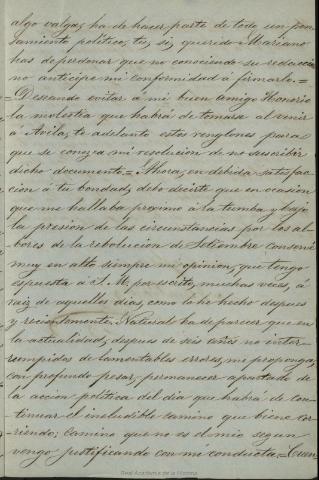 algo valga, ha de hacer parte de todo un pen-
samiento político, tu, si, querido Mariano
has de perdonar que no conociendo su redaccion
no anticipe mi conformidad á firmarlo.=
=Deseando evitar a mi buen amigo Honorio
la molestia que habrá de tomarse al venir
a Avila, te adelanto estos renglones para
que se conozca mi resolucion de no suscribir
dicho documento.= Ahora, en debida satisfac-
cion á tu bondad, debo decirte que en ocasion
que me hallaba proximo á la tumba y bajo
la presion de las circunstancias por los al-
bores de la rebolucion de Setiembre conservé
muy en alto siempre mi opinion, que tengo
espuesta á S. M. por escrito, muchas veces, á
raiz de aquellos dias, como lo he hecho despues
y recientemente. Natural ha de parecer que en
la actualidad, despues de seis años no inter-
rompidos de lamentables errores, me proponga,
con profundo pesar, permanecer apartado de
la accion política del dia que habrá de con-
tinuar el ineludible camino que biene cor-
riendo; camino que no es el mio segun
vengo justificando con mi conducta.=
Real Academia de la Historia